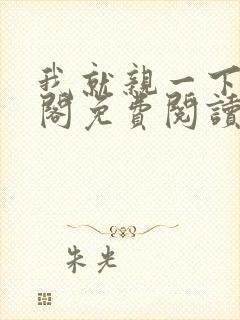 我就親一下
閣免費閱讀
朱光